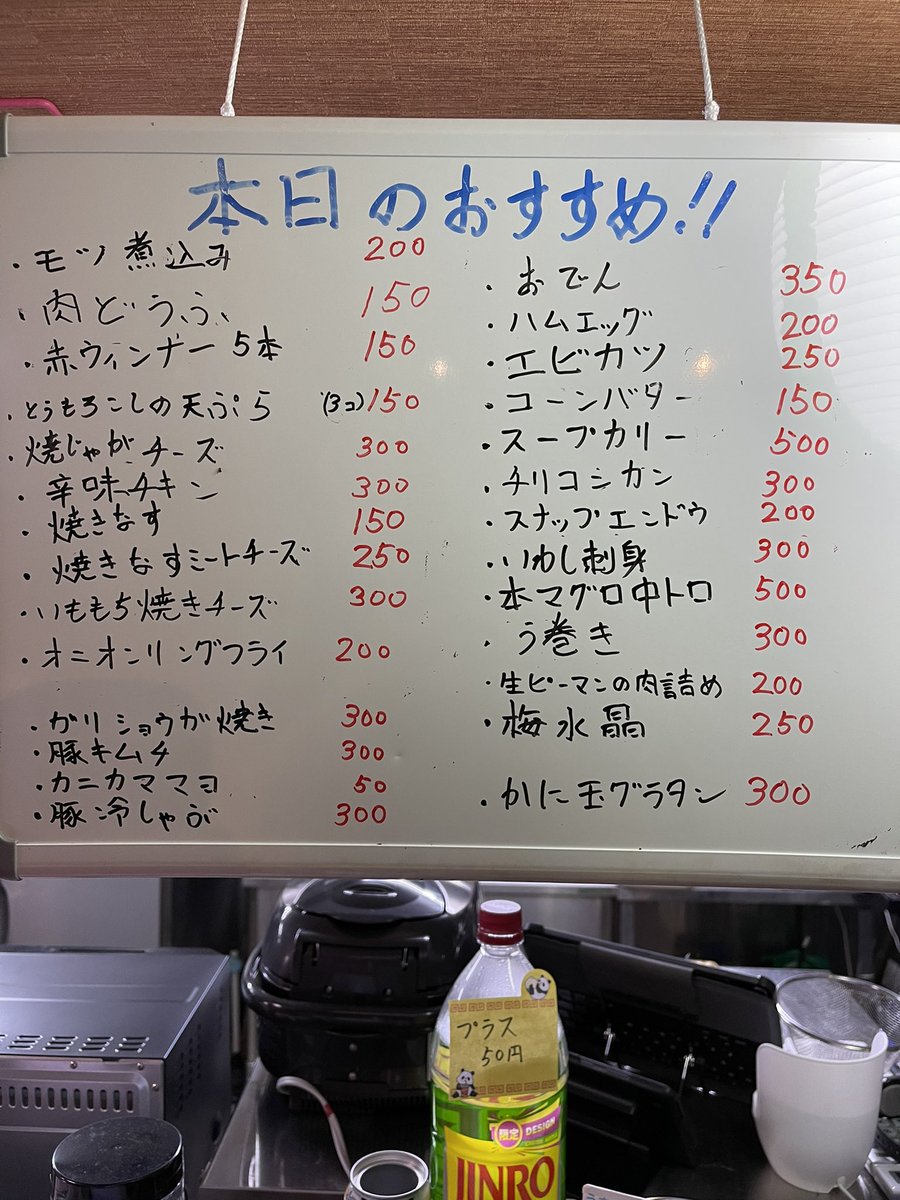 本日のおすすめ!!
・モツ煮込み 200
・肉どうふ 150
・赤ウィンナー5本 150
・とうもろこしの天ぷら (3コ)150
・焼じゃがチーズ 300
・辛味チキン 300
・焼きなす 150
・焼きなすミートチーズ 250
・いももち焼きチーズ 300
・オニオンリングフライ 200
・ガリショウガ焼き 300
・豚キムチ 300
・カニカママヨ 50
・豚冷しゃぶ 300
・おでん 350
・ハムエッグ 200
・エビカツ 250
・コーンバター 150
・スープカリー 500
・チリコンカン 300
・スナップエンドウ 200
・いわし刺身 300
・本マグロ中トロ 500
・う巻き 300
・生ピーマンの肉詰め 200
・梅水晶 250
・かに玉グラタン 300
プラス
50円
限定 DESIGN
JINRO